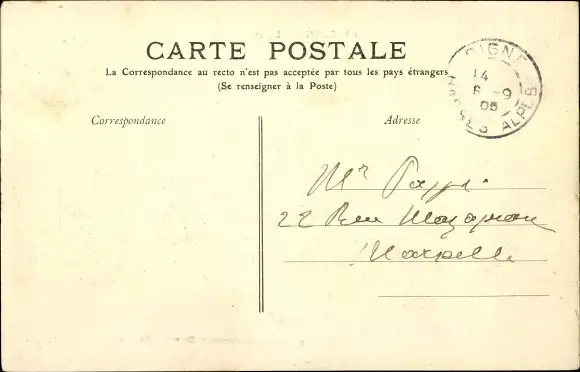 CARTE POSTALE
La Correspondance au recto n'est pas acceptée par tous les pays étrangers
(Se renseigner à la Poste)
DIGNE
14
8 -9
05
BASSES ALPES
Correspondance
Adresse
Mr
22 Rue Mazagran
Marseille